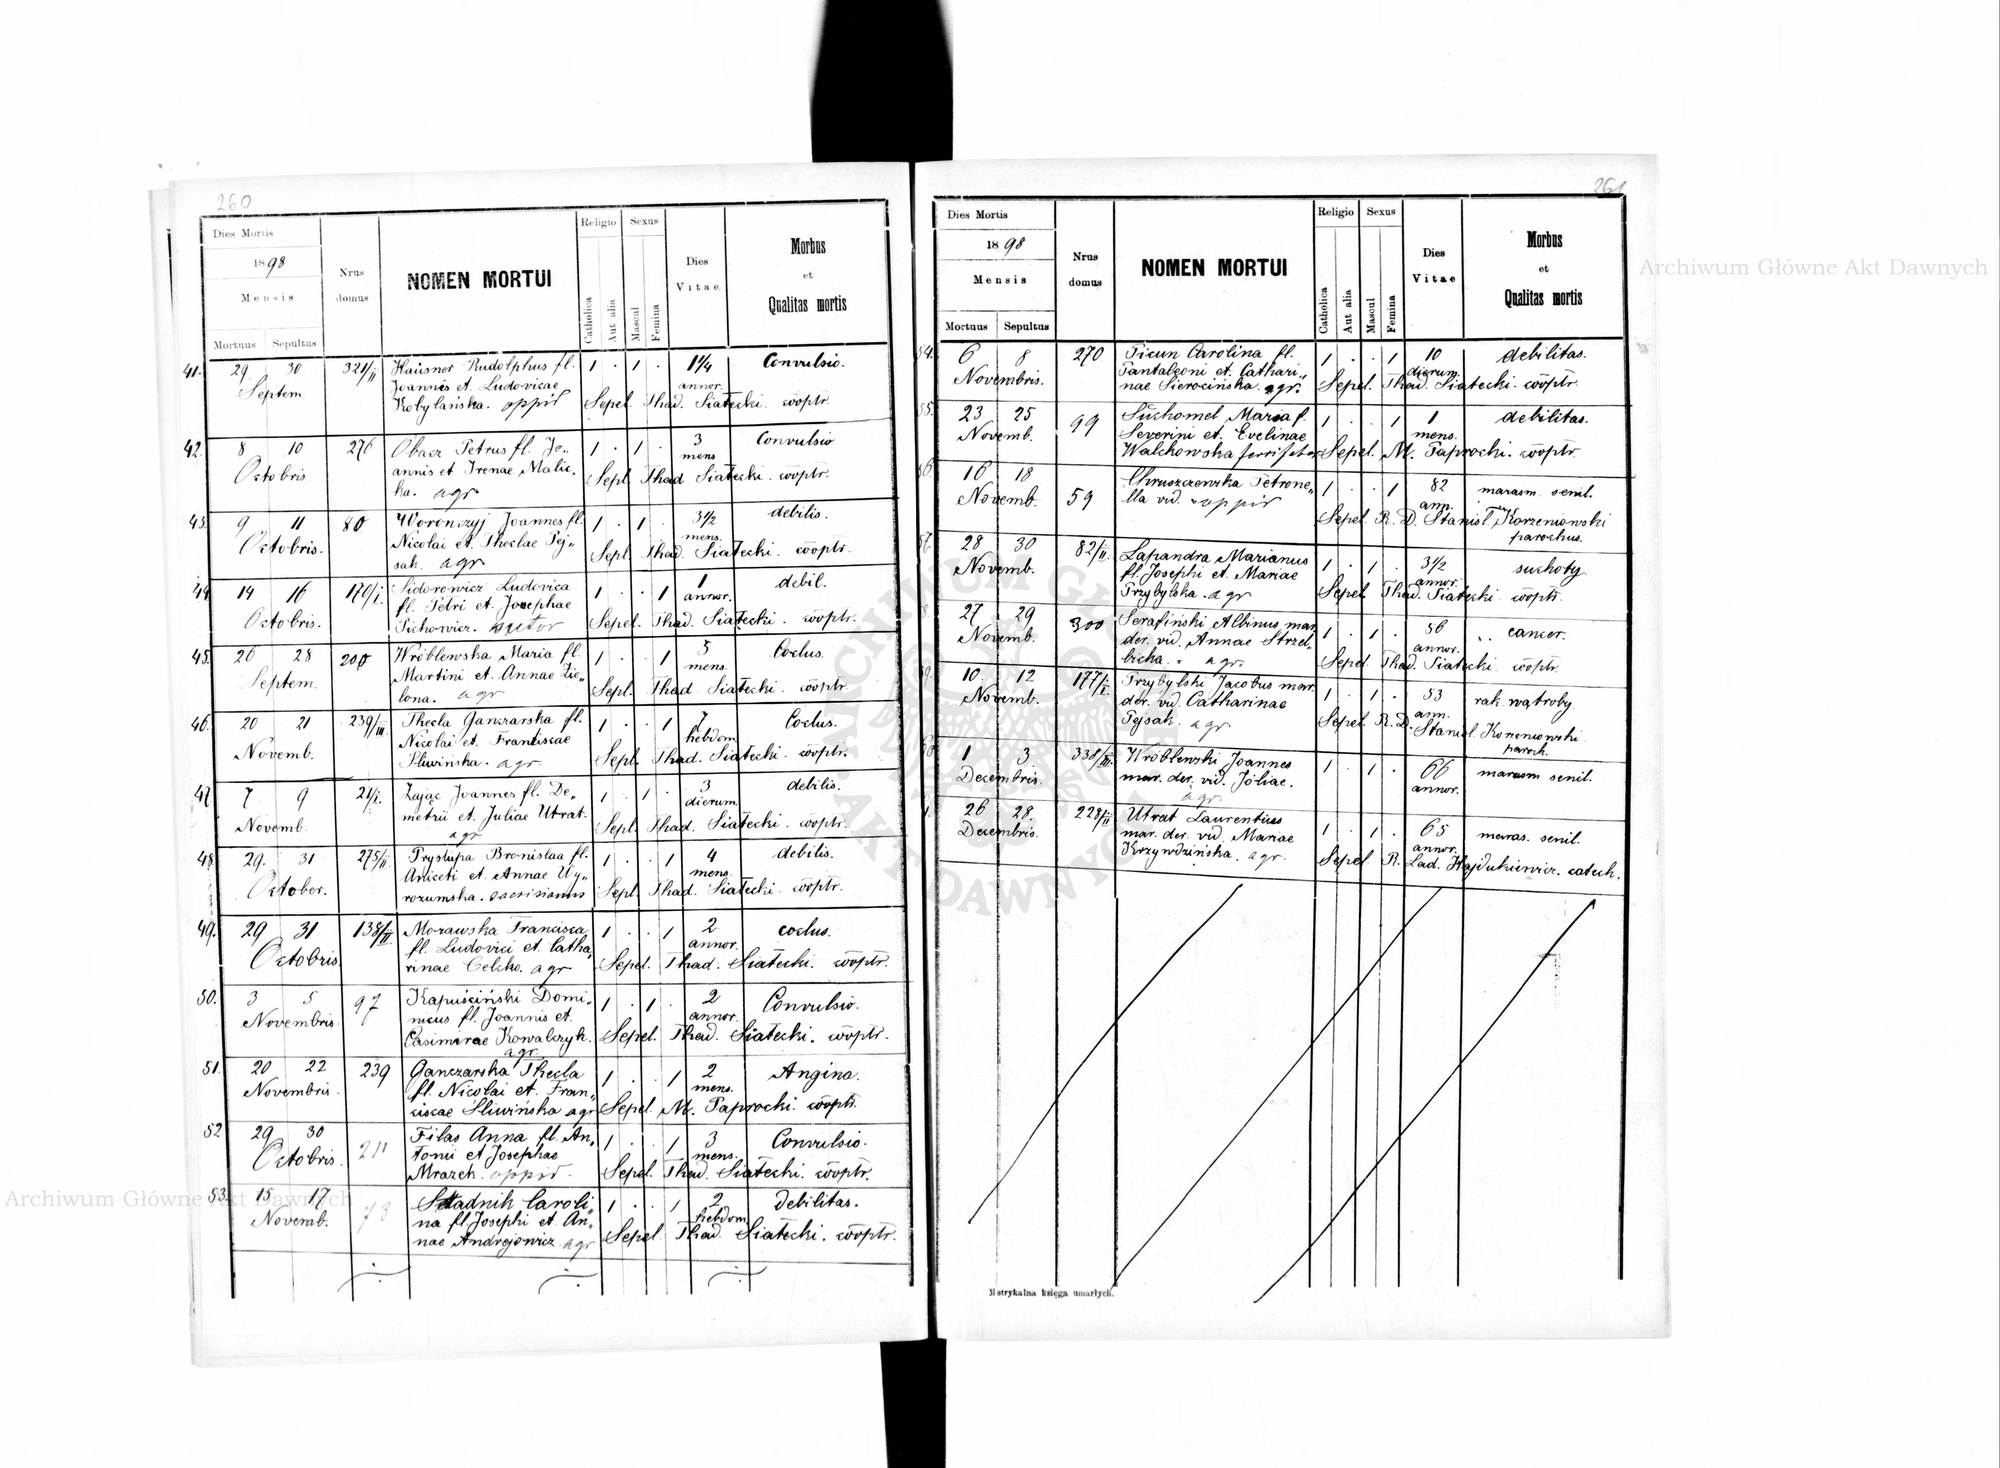 260
Dies Mortis
1898
Mensis
Mortuus Sepultus
Nrus domus
NOMEN MORTUI
Religio
Catholica
Aut alia
Sexus
Mascul
Femina
Dies Vitae
Morbus
et
Qualitas mortis
41. 29 30 321/II Haüsner Rudolphus fl. 1 . 1 . 1 1/4 Convulsio.
Septem. Joannis et Ludovicae annor.
Kobylańska. oppid Sepel. Thad. Siatecki. cööptr.
42. 8 10 276 Obacz Petrus fl. Jo„ 1 . 1 . 3 Convulsio
Octobris annis et Irenae Malic„ mens
ka. agr Sepl. Thad Siatecki. cööptr.
43. 9 11 80 Woronczyj Joannes fl. 1 . 1 . 3 1/2 debilis.
Octobris. Nicolai et Theclae Pej„ mens.
sak. agr Sepl. Thad. Siatecki. cööptr.
44 14 16 170/I. Sidorowicz Ludovica 1 . . 1 1 debil.
Octobris. fl. Petri et Josephae annor.
Sichowicz. Sepel. Thad. Siatecki. cööptr.
45. 26 28 200 Wróblewska Maria fl. 1 . . 1 5 Coclus.
Septem. Martini et Annae Zie„ mens.
lona. agr Sepl. Thad Siatecki. cööptr.
46. 20 21 239/III Thecla Ganczarska fl. 1 . . 1 7 Coclus.
Novemb. Nicolai et Franciscae hebdom
Sliwińska. agr. Sepl. Thad Siatecki. cööptr.
47 7 9 21/I. Zając Joannes fl. De„ 1 . 1 . 3 debilis.
Novemb. metrii et Juliae Utrat. dierum
agr Sepl. Thad. Siatecki. cööptr.
48. 29. 31 275/II Prystupa Bronislaa fl. 1 . . 1 4 debilis.
October. Aniceti et Annae Wy„ mens.
rozumska. Sepl. Thad. Siatecki. cööptr.
49. 29 31 138/II Morawska Francisca 1 . . 1 2 coclus.
Octobris. fl. Ludovici et Catha„ annor.
rinae Celcho. agr Sepel. Thad. Siatecki. cööptr.
50. 3 5 97 Kapuściński Domi„ 1 . 1 . 2 Convulsio.
Novembris. nicus fl. Joannis et annor.
Casimirae Kowalczyk. Sepel. Thad. Siatecki. cööptr.
agr.
51. 20 22 239 Ganczarska Thecla 1 . . 1 2 Angina.
Novembris. fl. Nicolai et Fran„ mens.
ciscae Sliwińska agr Sepel. M. Paprocki. cööptr.
52 29 30 211 Filas Anna fl. An„ 1 . . 1 3 Convulsio.
Octobris. tonii et Josephae mens.
Mrazek. oppid. Sepel. Thad. Siatecki. cööptr.
53. 15 17 73 Stadnik Caroli„ 1 . . 1 2 Debilitas.
Novemb. na fl. Josephi et An„ hebdom
nae Andrejowicz agr Sepel. Thad. Siatecki. cööptr.
261
Dies Mortis
1898
Mensis
Mortuus Sepultus
Nrus domus
NOMEN MORTUI
Religio
Catholica
Aut alia
Sexus
Mascul
Femina
Dies Vitae
Morbus
et
Qualitas mortis
54. 6 8 270 Ficun Carolina fl. 1 . . 1 10 debilitas.
Novembris. Pantaleoni et Cathari„ dierum.
nae Sierocińska agr. Sepel Thad. Siatecki. cööptr.
55. 23 25 99 Suchomel Maria f. 1 . . 1 1 debilitas.
Novemb. Severini et Evelinae mens.
Walchowska Sepel. M. Paprocki. cööptr.
56. 16 18 59 Chruszczewska Petrone„ 1 . . 1 82 marasm. senil.
Novemb. lla vid. oppid ann.
Sepel. R. D. Stanisl. Korzeniowski
parochus.
57. 28 30 82/II. Lapandra Marianus 1 . 1 . 3 1/2 suchoty
Novemb. fl. Josephi et Mariae annor.
Przybylska. agr Sepel Thad. Siatecki. cööptr.
8. 27 29 300 Serafiński Albinus mar. 1 . 1 . 56 cancer.
Novemb. der. vid. Annae Strzel„ annor.
bicka. agr. Sepel Thad. Siatecki. cööptr.
59. 10. 12 177/I. Przybylski Jacobus mar. 1 . 1 . 53 rak wątroby
Novemb. der. vid. Catharinae ann.
Pejsak. agr. Sepel R. D. Stanisl. Korzeniowski
paroch.
60. 1 3 338/III. Wróblewski Joannes 1 . 1 . 66 marasm senil.
Decembris. mar. der. vid. Jóliae. annor.
agr.
1. 26 28 228/II Utrat Laurentius 1 . 1 . 65 maras. senil.
Decembris. mar. der. vid. Mariae annor.
Krzywdzińska. agr. Sepel R. Lad. Hajdukiewicz. catech.
Metrykalna księga umarłych.
Archiwum Główne Akt Dawnych
Archiwum Główne Akt Dawnych
ARCHIWUM GŁÓWNE AKT DAWNYCH